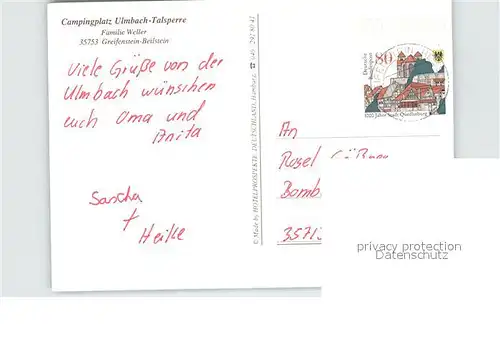 Campingplatz Ulmbach-Talsperre
Familie Weller
35753 Greifenstein-Beilstein
Viele Grüße von der
Ulmbach wünschen
euch Oma und
Anita
Sascha
+
Heike
© Made by HOTELPROSPEKTE DEUTSCHLAND, Hamburg, ☎ 040
Deutsche
Bundespost
80
1000 Jahre Stadt Quedlinburg
An
Rosel
Bomb
3571
privacy protection
Datenschutz